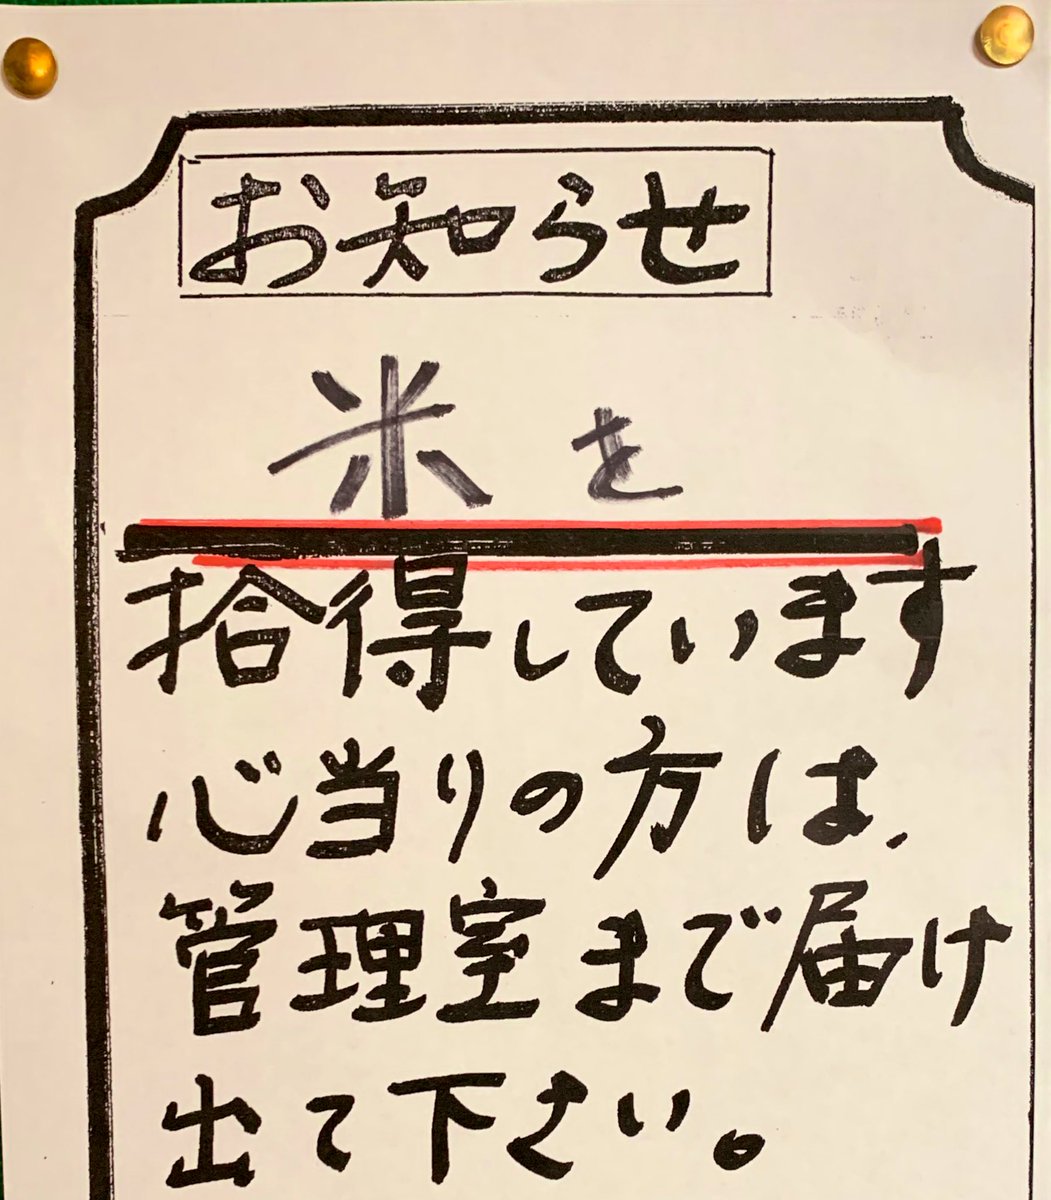 お知らせ
米を
拾得しています
心当りの方は、
管理室まで届け
出て下さい。